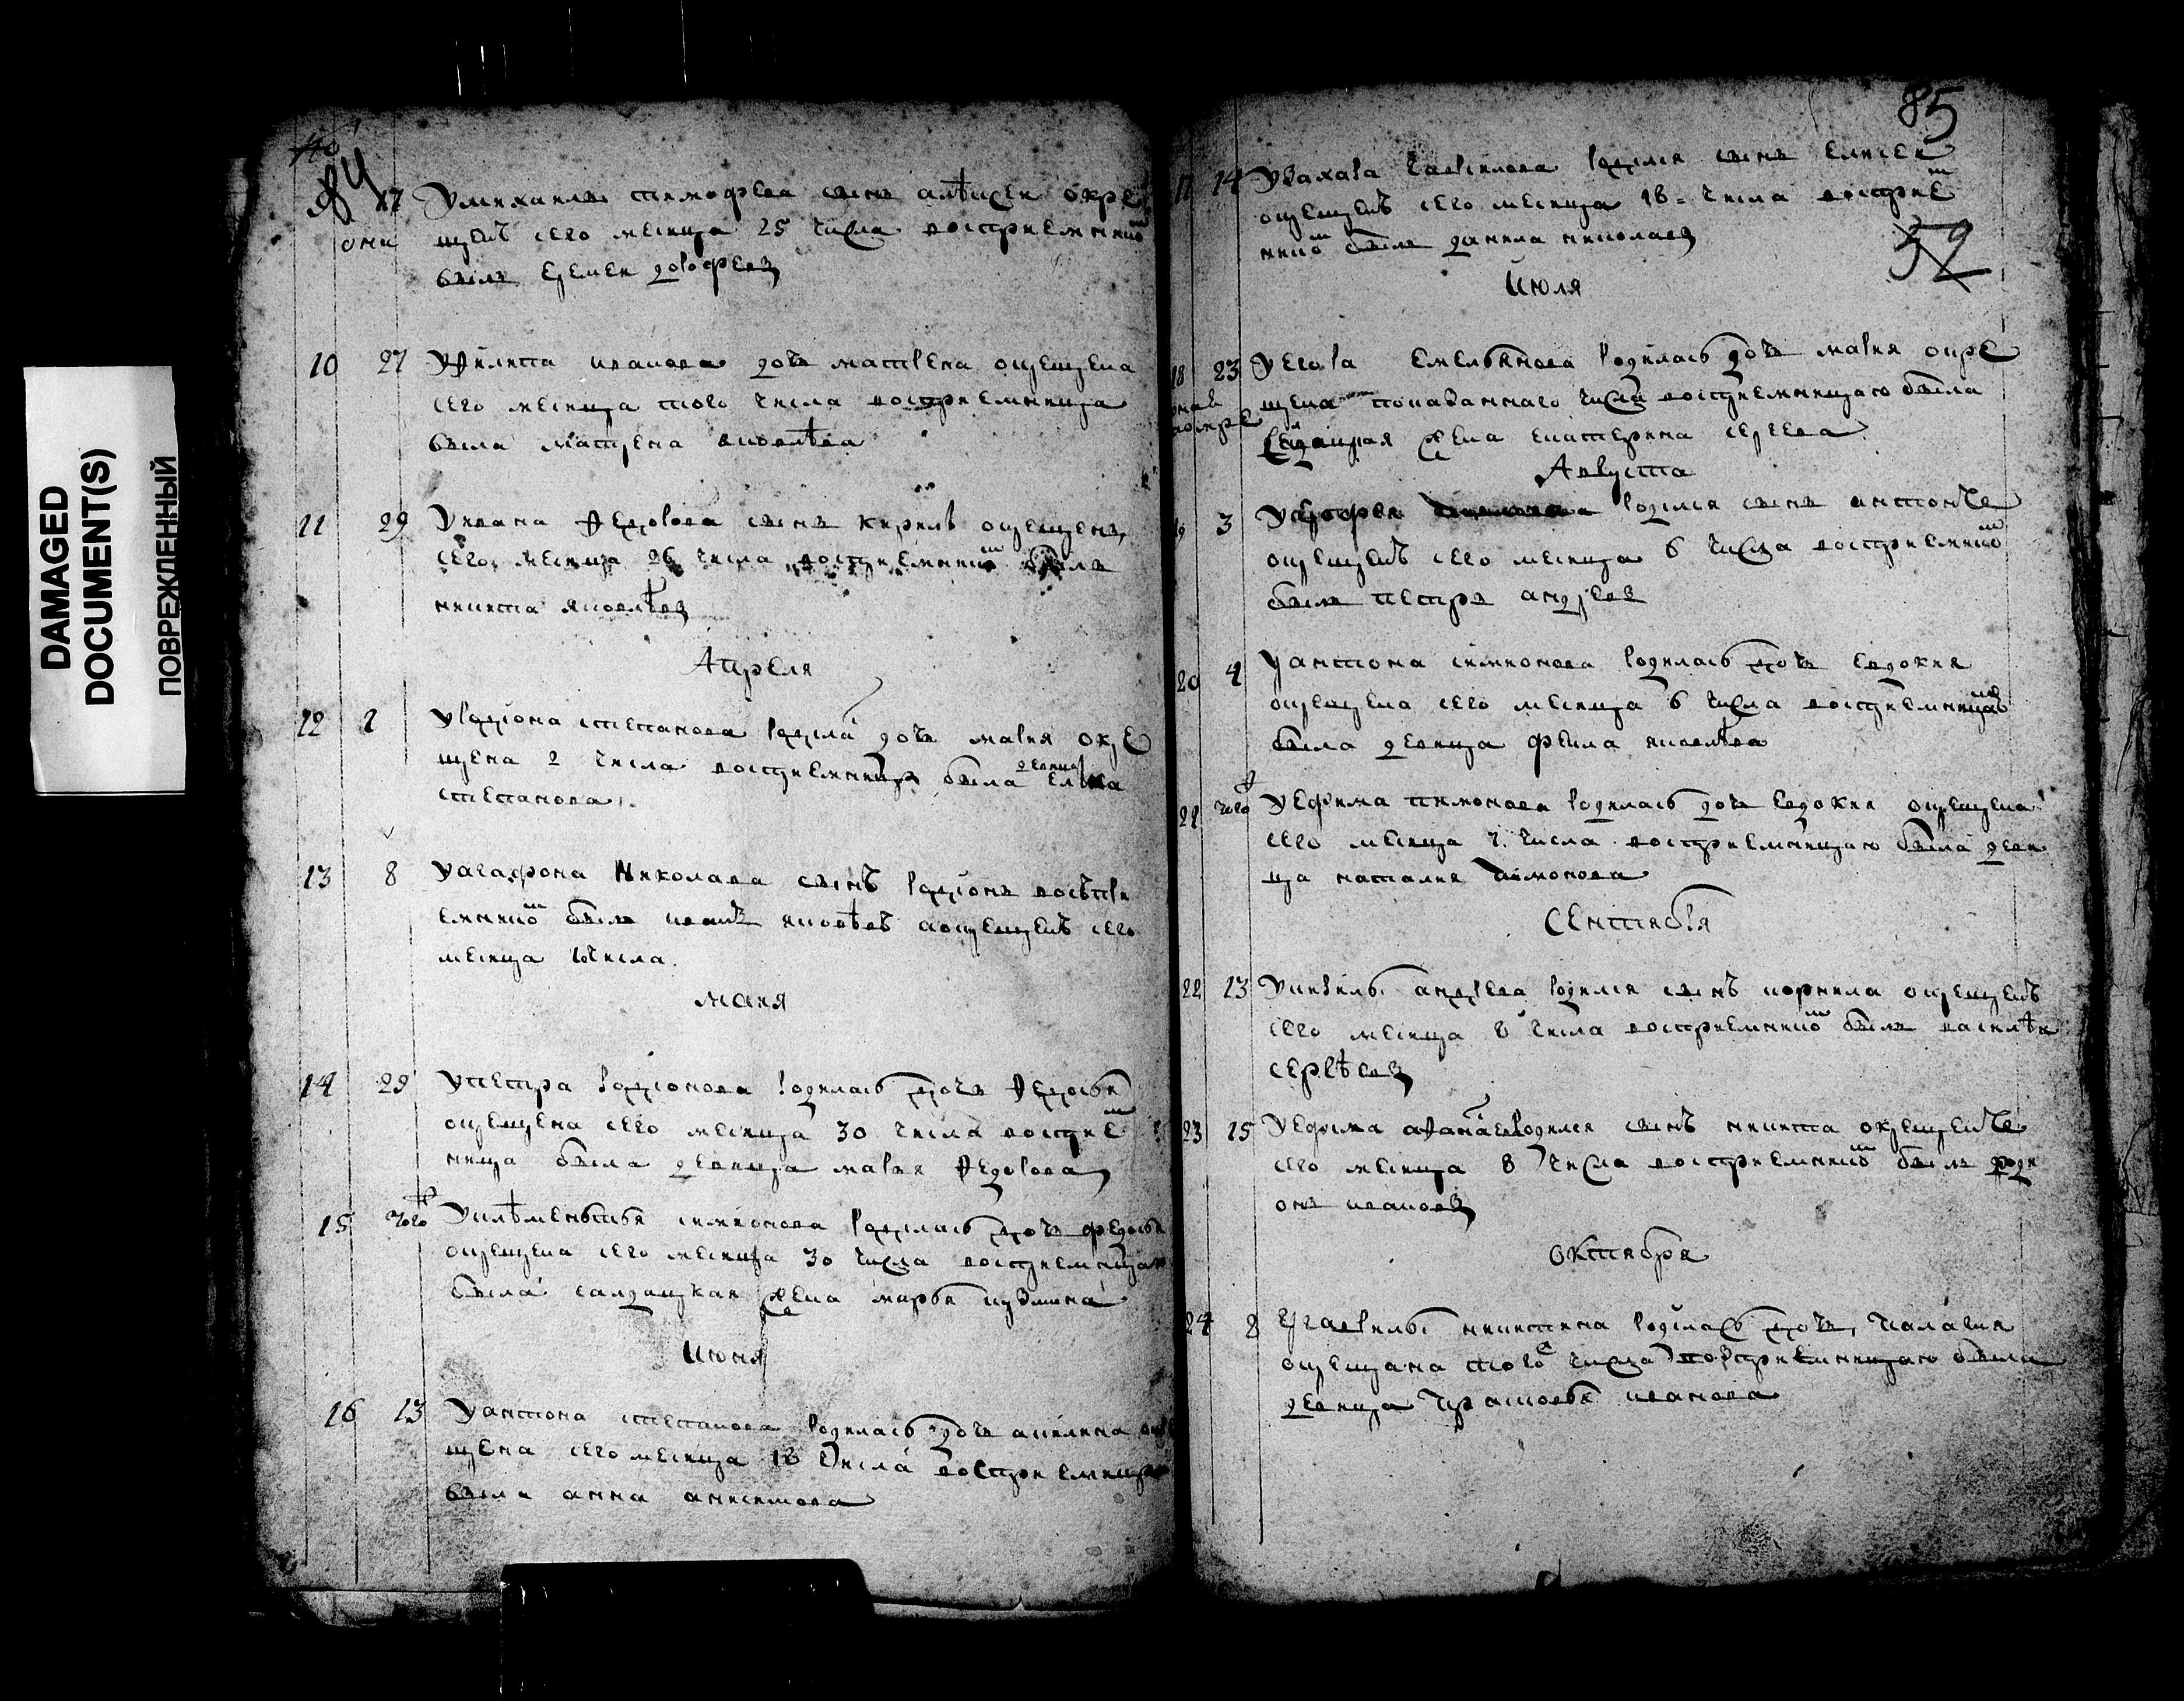 DAMAGED
DOCUMENT(S)
ПОВРЕЖДЕННЫЙ
84
17 У михаила тимофеева сынъ алѣѯеи окре
щенъ сего месяца 25 числа восприемникомъ
былъ еремеи дорофеев
10 27 У Ѳилипа иванова дочь матрена окрещена
сего месяца того числа восприемница
была матрена яковлѣва
11 29 У ивана Ѳедорова сынъ кирилъ окрещенъ
сего месяца 26 числа восприемникомъ былъ
никита яковлѣв
Апреля
12 1 У родиона степанова родилась дочь мария окре
щена 2 числа восприемница была девица
степанова
13 8 У агафона Николаева сынъ родионъ воспри
емникомъ былъ иванъ яковлѣвъ а окрещенъ сего
месяца числа
маия
14 29 У петра родионова родилась дочь Ѳедосья
окрещена сего месяца 30 числа восприем
ница была девица мария Ѳедорова
15 того У клѣментья симионова родилась дочь федосья
окрещена сего месяца 30 числа восприемницаю
была салдацкая жена марья кузмина
Июня
16 13 У антона степанова родилась дочь акилина окре
щена сего месяца 18 числа восприемницаю
была анна анисимова
85
52
17 14 У захара гаврилова родился сынъ елисеи
окрещенъ сего месяца 18 числа восприем
никомъ былъ данила николаев
Июля
18 23 У егора емельянова родилась дочь мария окре
щена показаннаго числа восприемницаю была
салдацкая жена екатерина сергеева
Августа
19 3 родился сынъ антонъ
окрещенъ сего месяца 6 числа восприемникомъ
былъ петръ андреев
20 4 У антона симионова родилась дочь евдокия
окрещена сего месяца 6 числа восприемницаю
была девица фекла яковлѣва
21 того У ефима пимонова родилась дочь евдокия окрещена
сего месяца 7 числа восприемницаю была деви
ца наталия пимонова
Сентября
22 13 У кирилы андреева родился сынъ корнила окрещенъ
сего месяца 8 числа восприемникомъ былъ василѣи
сергѣев
23 15 У ефима аѲанасьева родился сынъ никита окрещенъ
сего месяца 8 числа восприемникомъ былъ роди
онъ иванов
Октября
24 8 У гаврилы никитина родилась дочь палагия
окрещана того числа восприемницаю была
девица прасковья иванова